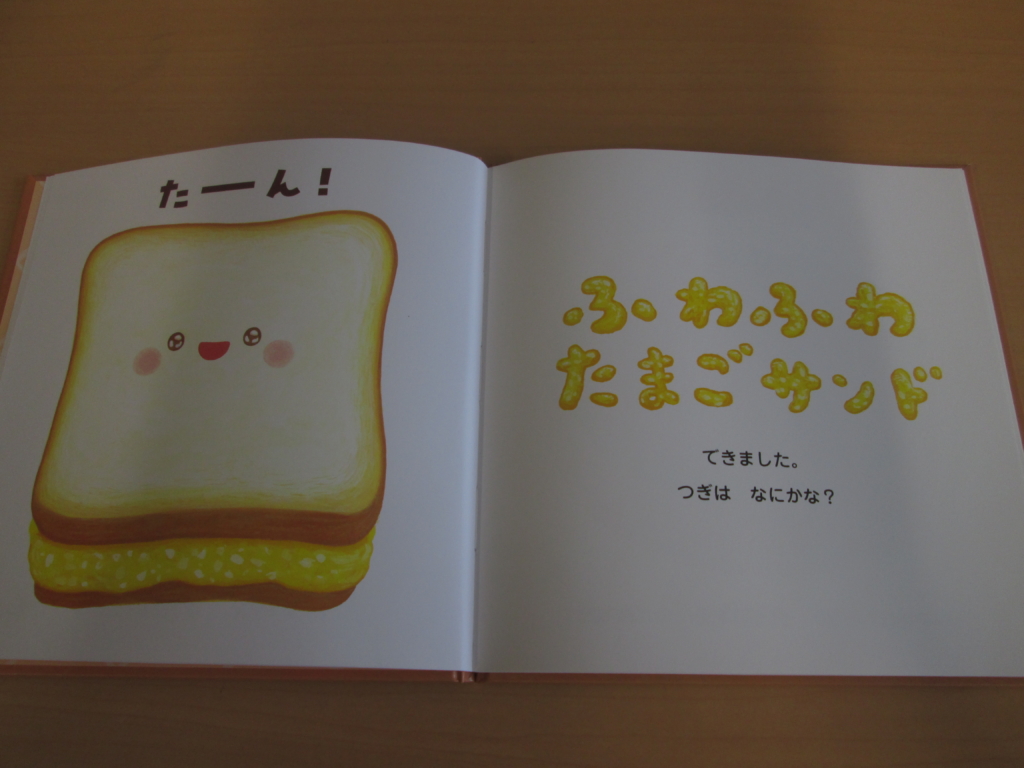 たーん!
ふわふわ
たまごサンド
できました。
つぎは なにかな?